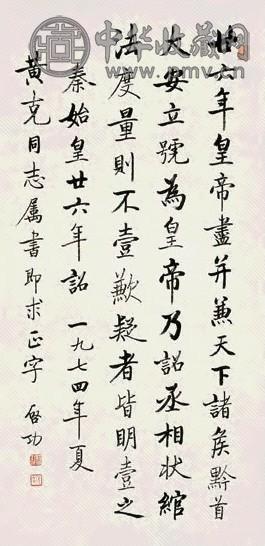 中华收藏网
www.pmv.cn
廿六年皇帝盡并兼天下諸矦黔首
大安立號為皇帝乃詔丞相狀綰
法度量則不壹歉疑者皆明壹之
秦始皇廿六年詔 一九七四年夏
黄克同志属書即求正字 啓功